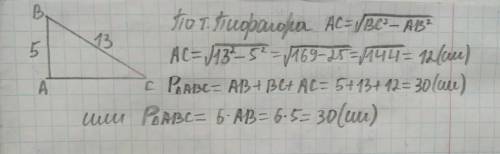 B
По т. Пифагора AC=√BC²-AB²
5
13
AC=√13²-5²=√169-25=√144=12(см)
A
C
P△ABC=AB+BC+AC=5+13+12=30(см)
или P△ABC=6·AB=6·5=30(см)